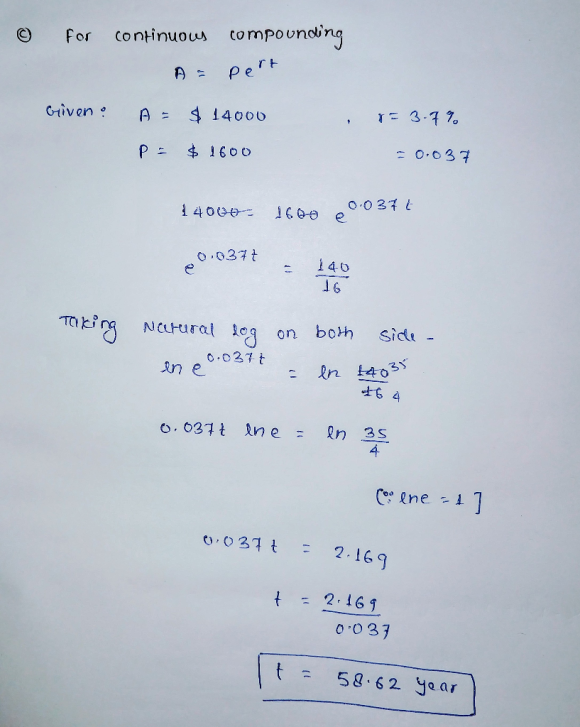 © For continuous compounding
A = Pe^rt
Given : A = $ 14000 , r = 3.7 %
P = $ 1600 = 0.037
14000 = 1600 e^0.037t
e^0.037t = 140/16
Taking Natural log on both side -
ln e^0.037t = ln 140 35/16 4
0.037t lne = ln 35/4
[∵ lne = 1]
0.037t = 2.169
t = 2.169/0.037
t = 58.62 year